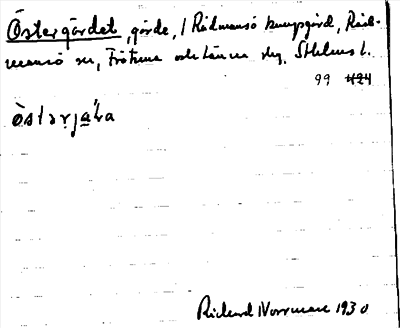 Östergärdet, gärde, / Rådmansö kungsgård, Råd-
mansö sn, Frötuna och Länna skg, Sthlms l.
99 424
òstərjæ̀ɽa
Richard Norrman 1930